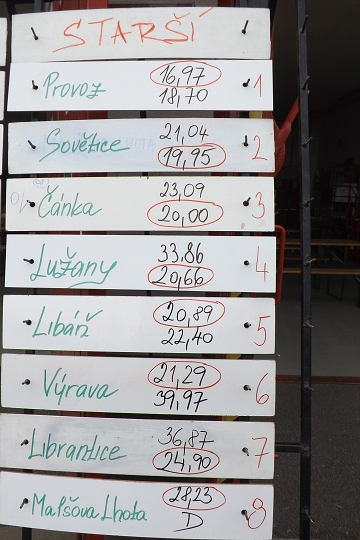 STARŠÍ
Provoz 16,97 1
18,70
Sovětice 21,04 2
19,95
Čánka 23,09 3
20,00
Lužany 33,86 4
20,66
Libáň 20,89 5
22,40
Výrava 21,29 6
39,97
Librantice 36,87 7
24,90
Malšova Lhota 28,23 8
D